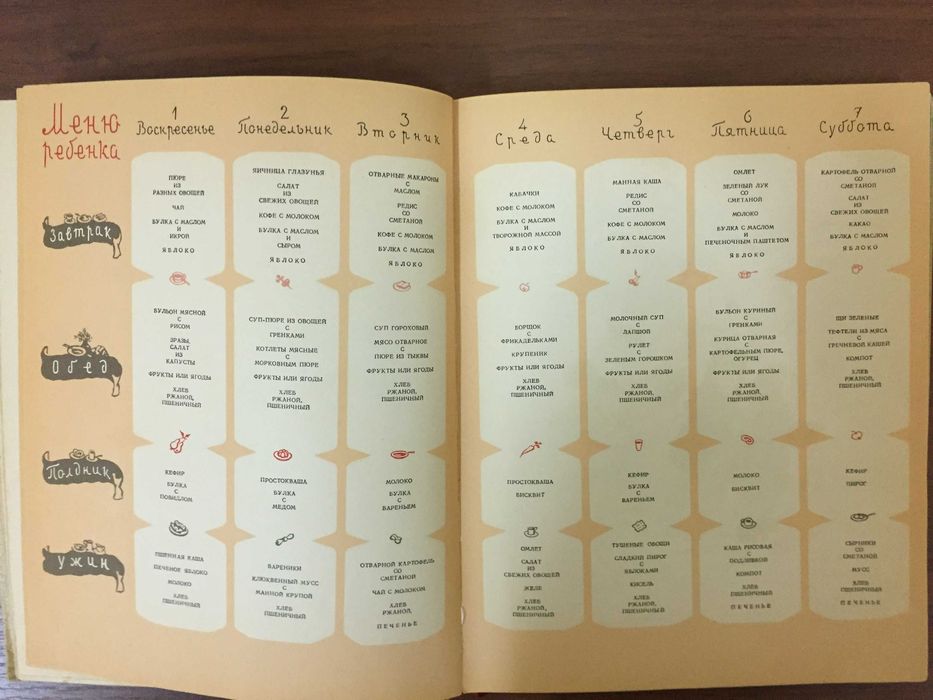 Меню
ребенка
1
Воскресенье
2
Понедельник
3
Вторник
4
Среда
5
Четверг
6
Пятница
7
Суббота
Завтрак
ПЮРЕ
ИЗ
РАЗНЫХ ОВОЩЕЙ
ЧАЙ
БУЛКА С МАСЛОМ
И
ИКРОЙ
ЯБЛОКО
ЯИЧНИЦА ГЛАЗУНЬЯ
САЛАТ
ИЗ
СВЕЖИХ ОВОЩЕЙ
КОФЕ С МОЛОКОМ
БУЛКА С МАСЛОМ
И
СЫРОМ
ЯБЛОКО
ОТВАРНЫЕ МАКАРОНЫ
С
МАСЛОМ
РЕДИС
СО
СМЕТАНОЙ
КОФЕ С МОЛОКОМ
БУЛКА С МАСЛОМ
ЯБЛОКО
КАБАЧКИ
КОФЕ С МОЛОКОМ
БУЛКА С МАСЛОМ
И
ТВОРОЖНОЙ МАССОЙ
ЯБЛОКО
МАННАЯ КАША
РЕДИС
СО
СМЕТАНОЙ
КОФЕ С МОЛОКОМ
БУЛКА С МАСЛОМ
ЯБЛОКО
ОМЛЕТ
ЗЕЛЕНЫЙ ЛУК
СО
СМЕТАНОЙ
МОЛОКО
БУЛКА С МАСЛОМ
И
ПЕЧЕНОЧНЫМ ПАШТЕТОМ
ЯБЛОКО
КАРТОФЕЛЬ ОТВАРНОЙ
СО
СМЕТАНОЙ
САЛАТ
ИЗ
СВЕЖИХ ОВОЩЕЙ
КАКАО
БУЛКА С МАСЛОМ
ЯБЛОКО
Обед
БУЛЬОН МЯСНОЙ
С
РИСОМ
ЗРАЗЫ,
САЛАТ
ИЗ
КАПУСТЫ
ФРУКТЫ ИЛИ ЯГОДЫ
ХЛЕБ
РЖАНОЙ,
ПШЕНИЧНЫЙ
СУП-ПЮРЕ ИЗ ОВОЩЕЙ
С
ГРЕНКАМИ
КОТЛЕТЫ МЯСНЫЕ
С
МОРКОВНЫМ ПЮРЕ
ФРУКТЫ ИЛИ ЯГОДЫ
ХЛЕБ
РЖАНОЙ,
ПШЕНИЧНЫЙ
СУП ГОРОХОВЫЙ
МЯСО ОТВАРНОЕ
С
ПЮРЕ ИЗ ТЫКВЫ
ФРУКТЫ ИЛИ ЯГОДЫ
ХЛЕБ
РЖАНОЙ,
ПШЕНИЧНЫЙ
БОРЩОК
С
ФРИКАДЕЛЬКАМИ
КРУПЕНИК
ФРУКТЫ ИЛИ ЯГОДЫ
ХЛЕБ
РЖАНОЙ,
ПШЕНИЧНЫЙ
МОЛОЧНЫЙ СУП
С
ЛАПШОЙ
РУЛЕТ
С
ЗЕЛЕНЫМ ГОРОШКОМ
ФРУКТЫ ИЛИ ЯГОДЫ
ХЛЕБ
РЖАНОЙ,
ПШЕНИЧНЫЙ
БУЛЬОН КУРИНЫЙ
С
ГРЕНКАМИ
КУРИЦА ОТВАРНАЯ
С
КАРТОФЕЛЬНЫМ ПЮРЕ,
ОГУРЕЦ
ФРУКТЫ ИЛИ ЯГОДЫ
ХЛЕБ
РЖАНОЙ,
ПШЕНИЧНЫЙ
ЩИ ЗЕЛЕНЫЕ
ТЕФТЕЛИ ИЗ МЯСА
С
ГРЕЧНЕВОЙ КАШЕЙ
КОМПОТ
ХЛЕБ
РЖАНОЙ,
ПШЕНИЧНЫЙ
Полдник
КЕФИР
БУЛКА
С
ПОВИДЛОМ
ПРОСТОКВАША
БУЛКА
С
МЕДОМ
МОЛОКО
БУЛКА
С
ВАРЕНЬЕМ
ПРОСТОКВАША
БИСКВИТ
КЕФИР
БУЛКА
С
ВАРЕНЬЕМ
МОЛОКО
БИСКВИТ
КЕФИР
ПИРОГ
Ужин
ПШЕННАЯ КАША
ПЕЧЕНОЕ ЯБЛОКО
МОЛОКО
ХЛЕБ
ПШЕНИЧНЫЙ
ВАРЕНИКИ
КЛЮКВЕННЫЙ МУСС
С
МАННОЙ КРУПОЙ
ХЛЕБ
ПШЕНИЧНЫЙ
ОТВАРНОЙ КАРТОФЕЛЬ
СО
СМЕТАНОЙ
ЧАЙ С МОЛОКОМ
ХЛЕБ
РЖАНОЙ,
ПЕЧЕНЬЕ
ОМЛЕТ
САЛАТ
ИЗ
СВЕЖИХ ОВОЩЕЙ
ЖЕЛЕ
ХЛЕБ
РЖАНОЙ,
ПШЕНИЧНЫЙ
ТУШЕНЫЕ ОВОЩИ
СЛАДКИЙ ПИРОГ
С
ЯБЛОКАМИ
КИСЕЛЬ
ХЛЕБ
РЖАНОЙ,
ПШЕНИЧНЫЙ
КАША РИСОВАЯ
С
ПОДЛИВКОЙ
КОМПОТ
ХЛЕБ
ПШЕНИЧНЫЙ
ПЕЧЕНЬЕ
СЫРНИКИ
СО
СМЕТАНОЙ
МУСС
ХЛЕБ
ПШЕНИЧНЫЙ
ПЕЧЕНЬЕ